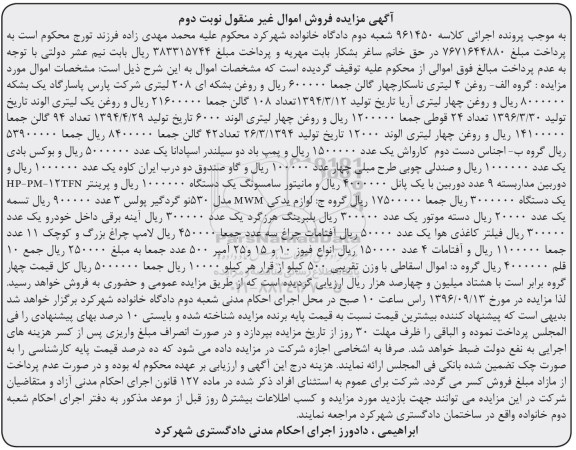 آگهی مزایده فروش اموال غیر منقول نوبت دوم
به موجب پرونده اجرائی کلاسه ۹۶۱۴۵۰ شعبه دوم دادگاه خانواده شهرکرد محکوم علیه محمد مهدی زاده فرزند تورج محکوم است به
پرداخت مبلغ ۷۶۷۱۶۴۴۸۸۰ در حق خانم ساغر بشکار بابت مهریه و پرداخت مبلغ ۳۸۳۳۱۵۷۴۴ ریال بابت نیم عشر دولتی با توجه
به عدم پرداخت مبالغ فوق اموالی از محکوم علیه توقیف گردیده است که مشخصات اموال به این شرح ذیل است: مشخصات اموال مورد
مزایده : گروه الف- روغن ۴ لیتری ناسکارچهار گالن جمعا ۶۰۰۰۰۰ ریال و روغن بشکه ای ۲۰۸ لیتری شرکت پارس پاسارگاد یک بشکه
۸۰۰۰۰۰۰ ریال و روغن چهار لیتری آریا تاریخ تولید ۱۳۹۴/۳/۱۲ تعداد ۱۰۸ گالن جمعا ۲۱۶۰۰۰۰۰ ریال و روغن یک لیتری الوند تاریخ
تولید ۱۳۹۶/۳/۳۰ تعداد ۲۴ قوطی جمعا ۱۲۰۰۰۰۰ ریال و روغن چهار لیتری الوند ۶۰۰۰ تاریخ تولید ۱۳۹۴/۴/۲۹ تعداد ۹۴ گالن جمعا
۱۴۱۰۰۰۰۰ ریال و روغن چهار لیتری الوند ۱۲۰۰۰ تاریخ تولید ۲۶/۳/۱۳۹۴ تعداد۴۲ گالن جمعا ۸۴۰۰۰۰۰ ریال جمعا ۵۳۹۰۰۰۰۰
ریال گروه ب- اجناس دست دوم  کارواش یک عدد ۱۵۰۰۰۰۰ ریال و پمپ باد دو سیلندر اسپادانا یک عدد ۵۰۰۰۰۰۰ ریال و بوکس بادی
یک عدد ۱۰۰۰۰۰۰ ریال و صندلی چوبی طرح مبلی چهار عدد ۱۰۰۰۰۰۰ ریال و گاو صندوق دو درب ایران کاوه یک عدد ۱۰۰۰۰۰۰ ریال و
دوربین مداربسته ۹ عدد دوربین با یک پانل ۴۰۰۰۰۰۰ ریال و مانیتور سامسونگ یک دستگاه ۱۰۰۰۰۰۰ ریال و پرینتر HP-PM-۱۲TFN
یک دستگاه ۳۰۰۰۰۰۰ ریال جمعا ۱۷۵۰۰۰۰۰ ریال گروه ج: لوازم یدکی MWM مدل ۵۳۰نو گردگیر پولس ۳ عدد ۹۰۰۰۰۰ ریال تسمه
یک عدد ۲۰۰۰۰ ریال دسته موتور یک عدد ۳۰۰۰۰۰ ریال بلبرینگ هرزگرد یک عدد ۳۰۰۰۰۰ ریال آینه برقی داخل خودرو یک عدد
۳۰۰۰۰۰ ریال فیلتر کاغذی هوا یک عدد ۵۰۰۰۰ ریال آفتامات چراغ سه عدد جمعا ۴۵۰۰۰۰ ریال لامپ چراغ بزرگ و کوچک ۱۱ عدد
جمعا ۱۱۰۰۰۰ ریال و آفتامات ۴ عدد ۱۵۰۰۰۰۰ ریال انواع فیوز ۱۰ و ۱۵ و۲۵ آمپر ۵۰۰ عدد جمعا به مبلغ ۲۵۰۰۰۰ ریال جمع ۱۰
قلم ۴۰۰۰۰۰۰ ریال گروه د: اموال اسقاطی با وزن تقریبی ۵۰۰ کیلو از قرار هر کیلو ۱۰۰۰۰ ریال جمعا ۵۰۰۰۰۰۰ ریال کل قیمت چهار
گروه برابر است با هشتاد میلیون و چهارصد هزار ریال ارزیابی گردیده است که از طریق مزایده عمومی و حضوری به فروش خواهد رسید.
لذا مزایده در مورخ ۱۳۹۶/۰۹/۱۳ راس ساعت ۱۰ صبح در محل اجرای احکام مدنی شعبه دوم دادگاه خانواده شهرکرد برگزار خواهد شد
بدیهی است که پیشنهاد کننده بیشترین قیمت نسبت به قیمت پایه برنده مزایده شناخته شده و بایستی ۱۰ درصد بهای پیشنهادی را فی
المجلس پرداخت نموده و الباقی را ظرف مهلت ۳۰ روز از تاریخ مزایده بپردازد و در صورت انصراف مبلغ واریزی پس از کسر هزینه های
اجرایی به نفع دولت ضبط خواهد شد. صرفا به اشخاصی اجازه شرکت در مزایده داده می شود که ده درصد قیمت پایه کارشناسی را به
صورت چک تضمین شده بانکی فی المجلس ارائه نمایند. هزینه درج این آگهی و ارزیابی بر عهده محکوم له بوده و در صورت عدم پرداخت
از مازاد مبلغ فروش کسر می گردد. شرکت برای عموم به استثنای افراد ذکر شده در ماده ۱۲۷ قانون اجرای احکام مدنی آزاد و متقاضیان
شرکت در این مزایده می توانند جهت بازدید مورد مزایده و کسب اطلاعات بیشتر۵ روز قبل از موعد مذکور به دفتر اجرای احکام شعبه
دوم خانواده واقع در ساختمان دادگستری شهرکرد مراجعه نمایند.
ابراهیمی ، دادورز اجرای احکام مدنی دادگستری شهرکرد